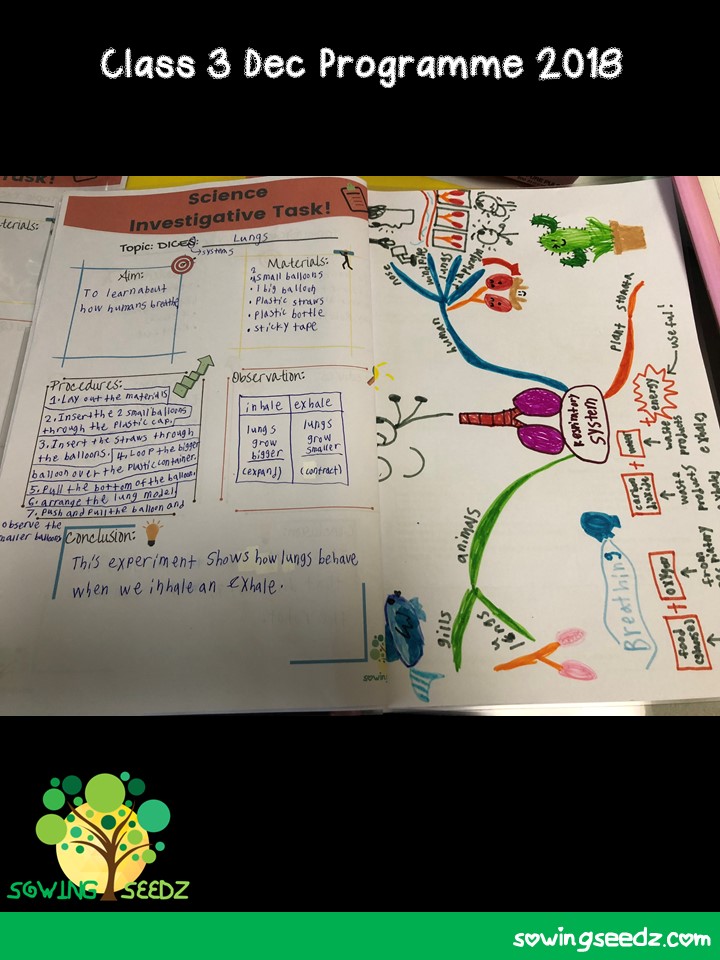 Class 3 Dec Programme 2018
Task!
Materials:
Science
Investigative Task!
Topic: DICES: Lungs
systems
Aim:
To learn about
how humans breathe
Materials:
2 small balloons
1 big balloon
Plastic straws
plastic bottle
sticky tape
Procedures:
1. Lay out the materials
2. Insert the 2 small balloons
through the plastic cap.
3. Insert the straws through
the balloons. 4. Loop the bigger
balloon over the plastic container.
5. Pull the bottom of the balloon.
6. arrange the lung model
7. Push and pull the balloon and
observe the
smaller balloons
Observation:
inhale exhale
lungs lungs
grow grow
bigger smaller
(expand) (contract)
Conclusion:
This experiment shows how lungs behave
when we inhale an exhale.
Respiratory
System
human
nose
windpipe
lungs
plant stomata
animals
gills
lungs
Breathing
food
+
oxygen
from
carbon
dioxide
+
waste
products
+
energy
useful!
waste
products
exhales
SOWING SEEDZ
sowingseedz.com